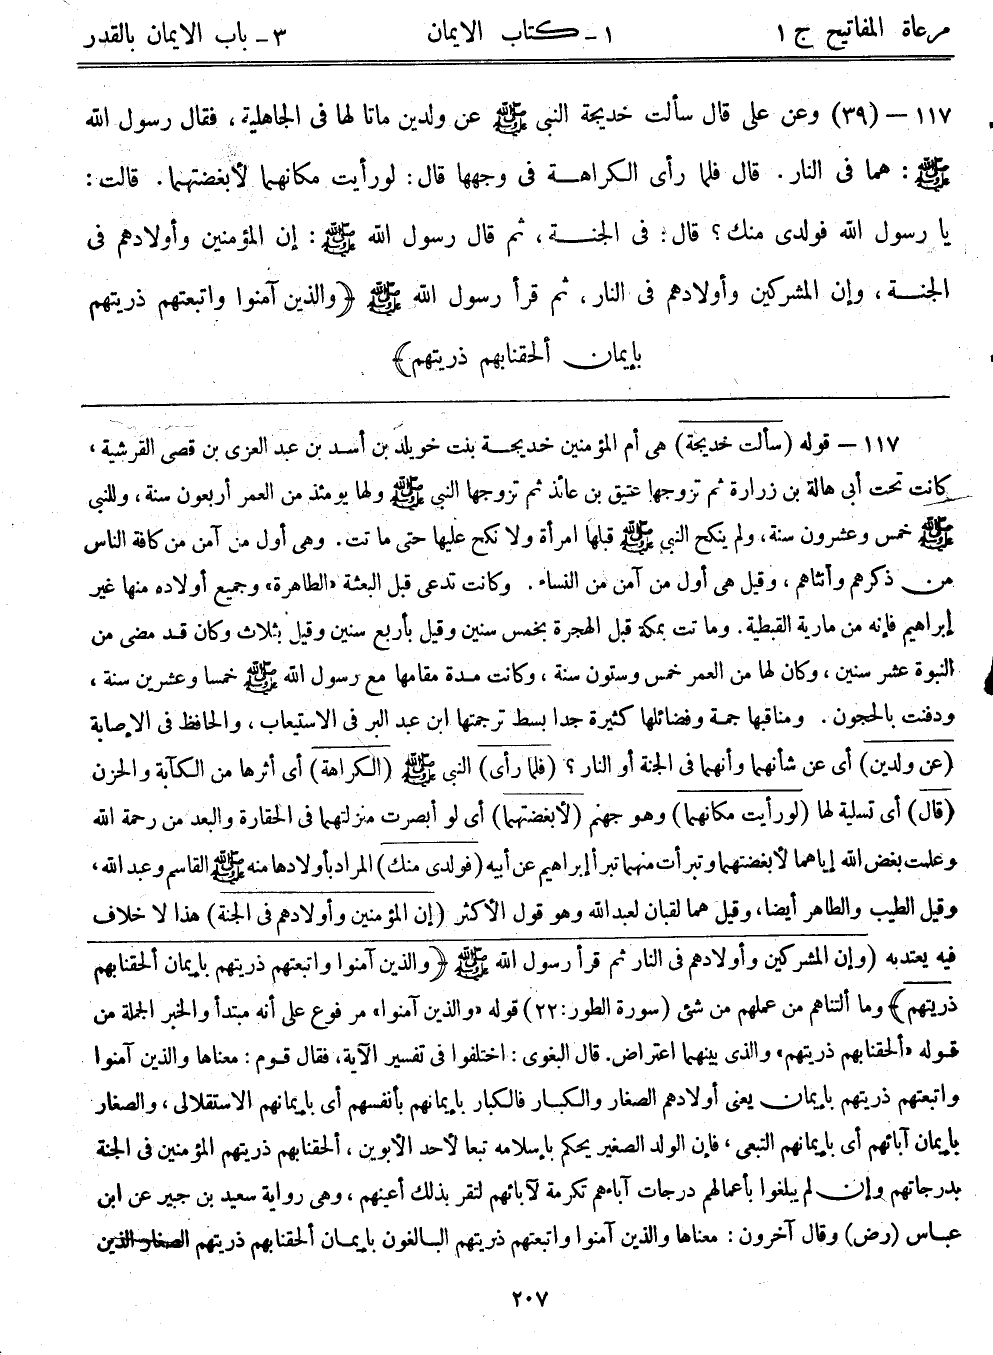 مرعاة المفاتيح ج ١ ١ - كتاب الايمان ٣ - باب الايمان بالقدر
١١٧ – (٣٩) وعن على قال سألت خديجة النبى ﷺ عن ولدين ماتا لها فى الجاهلية ، فقال رسول الله
ﷺ : هما فى النار . قال فلما رأى الكراهة فى وجهها قال : لو رأيت مكانهما لأبغضتهما . قالت :
يا رسول الله فولدى منك ؟ قال : فى الجنة ، ثم قال رسول الله ﷺ : إن المؤمنين وأولادهم فى
الجنة ، وإن المشركين وأولادهم فى النار ، ثم قرأ رسول الله ﷺ ﴿ والذين آمنوا واتبعتهم ذريتهم
بإيمان ألحقنابهم ذريتهم ﴾
١١٧ – قوله (سألت خديجة) هى أم المؤمنين خديجة بنت خويلد بن أسد بن عبد العزى بن قصى القرشية ،
كانت تحت أبى هالة بن زرارة ثم تزوجها عتيق بن عائذ ثم تزوجها النبى ﷺ ولها يومئذ من العمر أربعون سنة ، وللنبى
ﷺ خمس وعشرون سنة ، ولم ينكح النبى ﷺ قبلها امرأة ولا نكح عليها حتى ماتت . وهى أول من آمن من كافة الناس
من ذكرهم وأنثاهم ، وقيل هى أول من آمن من النساء . وكانت تدعى قبل البعثة «الطاهرة» وجميع أولاده منها غير
إبراهيم فإنه من مارية القبطية . وماتت بمكة قبل الهجرة بخمس سنين وقيل بأربع سنين وقيل بثلاث وكان قد مضى من
النبوة عشر سنين ، وكان لها من العمر خمس وستون سنة ، وكانت مدة مقامها مع رسول الله ﷺ خمسا وعشرين سنة ،
ودفنت بالحجون . ومناقبها جمة وفضائلها كثيرة جدا بسط ترجمتها ابن عبد البر فى الاستيعاب ، والحافظ فى الاصابة
(عن ولدين) أى عن شأنهما وأنهما فى الجنة أو النار ؟ (فلما رأى) النبى ﷺ (الكراهة) أى أثرها من الكآبة والحزن
(قال) أى تسلية لها (لو رأيت مكانهما) وهو جهنم (لأبغضتهما) أى لو أبصرت منزلتهما فى الحقارة والبعد من رحمة الله
وعلمت بغض الله إياهما لأبغضتهما وتبرأت منهما تبرأ إبراهيم عن أبيه (فولدى منك) المراد بأولادها منه ﷺ القاسم وعبد الله ،
وقيل الطيب والطاهر أيضا ، وقيل هما لقبان لعبد الله وهو قول الأكثر (إن المؤمنين وأولادهم فى الجنة) هذا لا خلاف
فيه يعتدبه (وإن المشركين وأولادهم فى النار ثم قرأ رسول الله ﷺ ﴿ والذين آمنوا واتبعتهم ذريتهم بإيمان ألحقنابهم
ذريتهم ﴾ وما ألتناهم من عملهم من شئ (سورة الطور : ٢٢) قوله «والذين آمنوا» مرفوع على أنه مبتدأ والخبر الجملة من
قوله «ألحقنابهم ذريتهم» والذى بينهما اعتراض . قال البغوى : اختلفوا فى تفسير الآية ، فقال قوم : معناها والذين آمنوا
واتبعتهم ذريتهم بإيمان يعنى أولادهم الصغار والكبار فالكبار بإيمانهم بأنفسهم أى بإيمانهم الاستقلالى ، والصغار
بإيمان آبائهم أى بإيمانهم التبعى ، فإن الولد الصغير يحكم بإسلامه تبعا لأحد الأبوين ، ألحقنابهم ذريتهم المؤمنين فى الجنة
بدرجاتهم وإن لم يبلغوا بأعمالهم درجات آباءهم تكرمة لآبائهم لتقر بذلك أعينهم ، وهى رواية سعيد بن جبير عن ابن
عباس (رض) وقال آخرون : معناها والذين آمنوا واتبعتهم ذريتهم البالغون بإيمان ألحقنابهم ذريتهم الصغار الذين
٢٠٧